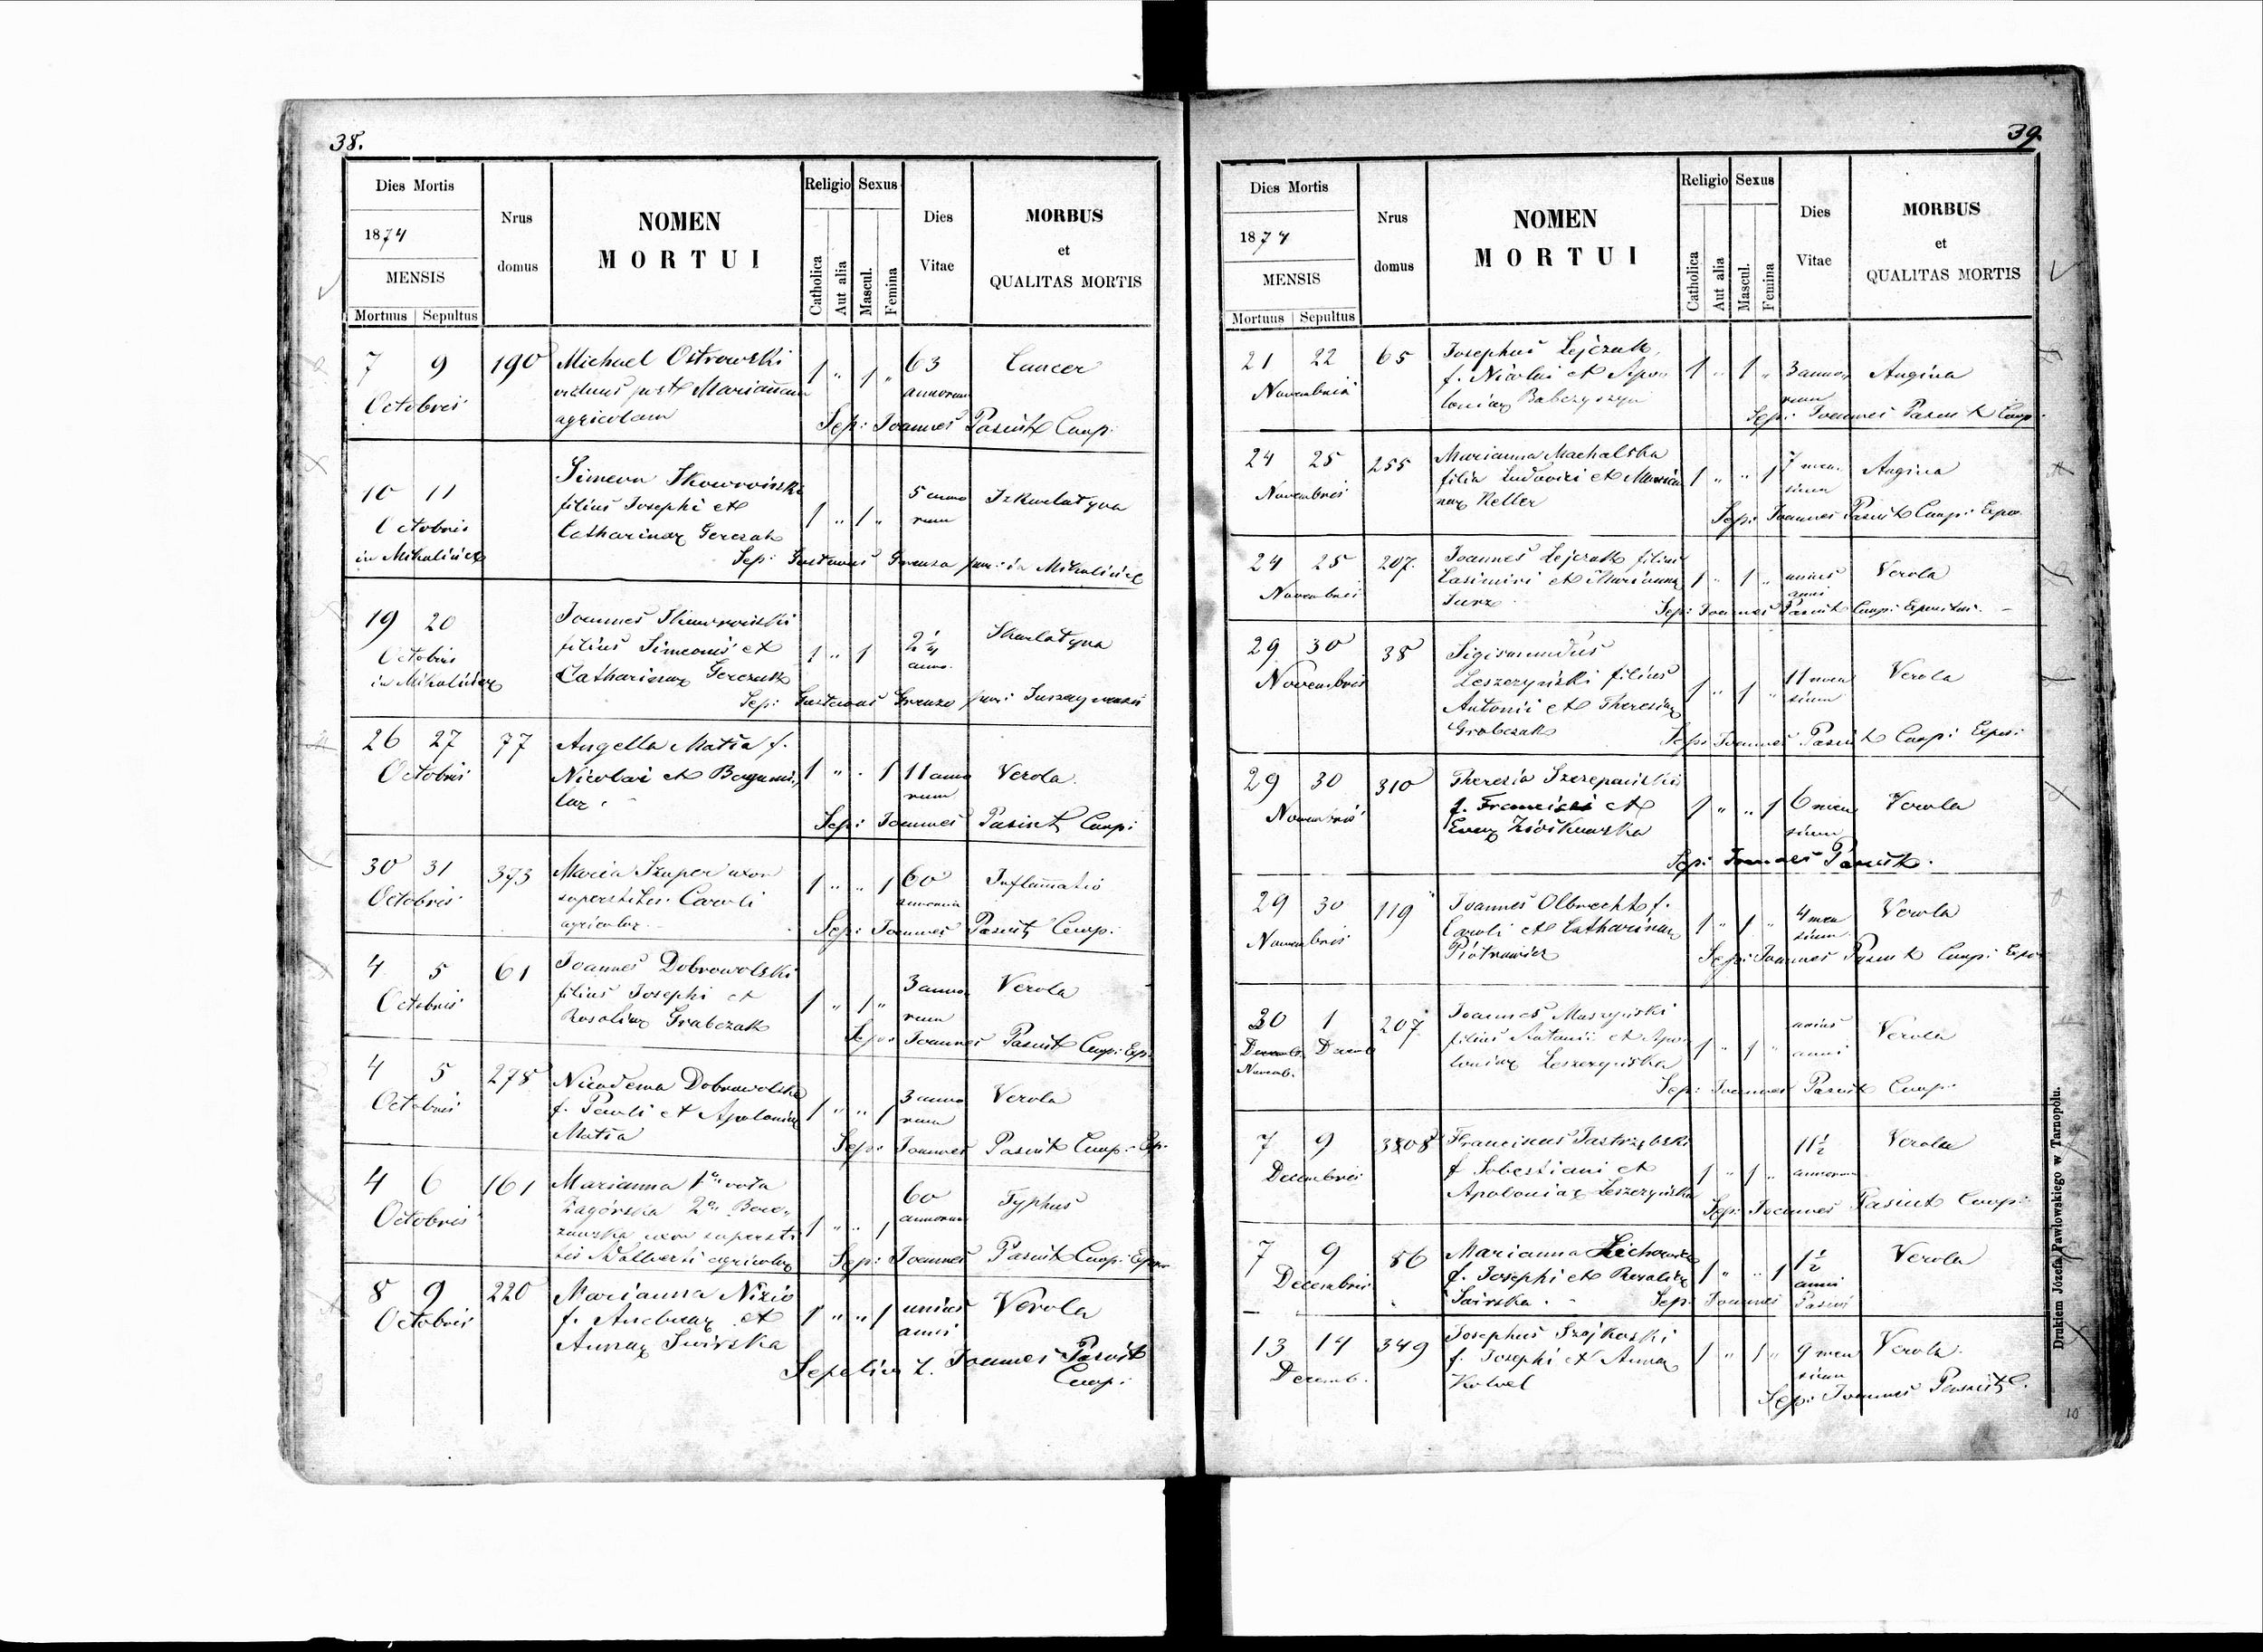 38.
Dies Mortis
1874
MENSIS
Mortuus Sepultus
Nrus
domus
NOMEN
MORTUI
Religio Sexus
Catholica
Aut alia
Mascul.
Femina
Dies
Vitae
MORBUS
et
QUALITAS MORTIS
7 9 190 Michael Ostrowski 1 " 1 " 63 Cancer
Octobris viduus post Mariannam annorum
agricolam Sep: Joannes Pasiut Coop.
10 11 Simeon Skowroński 5 anno Szkarlatyna
Octobris filius Josephi et 1 " 1 " rum
in Mikulińce Catharinae Gerczak
Sep: Gustavus in Mikulińce
19 20 Joannes Skowroński 2 1/4 Skarlatyna
Octobris filius Simeonis et 1 " 1 anno.
Catharinae Gerczak
Sep: Gustavus
26 27 77 Angella Matia f.
Octobris Nicolai et 1 " " 1 11 anno Verola
rum
Sep: Joannes Pasiut Coop:
30 31 393 Maria Szuper uxor 1 " " 1 60 Inflamatio
Octobris superstites Caroli annorum
agricolae Sep: Joannes Pasiut Coop:
4 5 61 Joannes Dobrowolski 3 anno Verola
Octobris filius Josephi et 1 " 1 " rum
Rosaliae Grabczak Sep: Joannes Pasiut Coop: Exp.
4 5 278 Nicodema Dobrowolska 3 anno Verola
Octobris f. Pauli et Apoloniae 1 " " 1 rum
Matia Sep: Joannes Pasiut Coop: Exp.
4 6 161 Marianna 1o voto 60 Typhus
Octobris Zagórska 2o annorum
uxor supersti 1 " " 1
tis Adalberti agricolae Sep: Joannes Pasiut Coop.
8 9 220 Marianna Nizio 1 " " 1 unius Verola
Octobris f. Andreae et anni
Annae Swirska
Joannes Pasiut
Coop:
39.
Dies Mortis
1874
MENSIS
Mortuus Sepultus
Nrus
domus
NOMEN
MORTUI
Religio Sexus
Catholica
Aut alia
Mascul.
Femina
Dies
Vitae
MORBUS
et
QUALITAS MORTIS
21 22 65 Josephus Lejczak
Novembris f. Nicolai et Apo 1 " 1 " 3 anno Angina
loniae Babczyszyn rum
Sep: Joannes Pasiut Coop:
24 25 255 Marianna Machalska 7 men Angina
Novembris filia Ludovici et Marian 1 " " 1 sium
nae Keller Sep: Joannes Pasiut Coop: Expo.
24 25 207. Joannes Lejczak filius unius Verola
Novembris Casimiri et Mariannae 1 " 1 " anni
Sep: Joannes Pasiut Coop: Expositus.
29 30 38 Sigismundus
Novembris Leszczyński filius 1 " 1 " 11 men Verola
Antonii et Theresiae sium
Grabczak Sep: Joannes Pasiut Coop: Expos:
29 30 310 Theresia Szczepański
Novembris f. Francisci et 1 " " 1 6 men Verola
Evae Ziółkowska sium
Sep: Joannes Pasiut.
29 30 119 Joannes Olbrecht f. 4 men Verola
Novembris Caroli et Catharinae 1 " 1 " sium
Piótrowicz Sep: Joannes Pasiut Coop: Expo
30 1 207 Joannes Muszyński unius Verola
Decemb. Decemb filius Antonii et Apo 1 " 1 " anni
Novemb. loniae Leszczyńska
Sep: Joannes Pasiut Coop:
7 9 308 Franciscus Jastrzębski 1 1/2 Verola
Decembris f Sebestiani et 1 " 1 " annorum
Apoloniae Leszczyńska Sep: Joannes Pasiut Coop:
7 9 86 Marianna Lichowska 1 1/2 Verola
Decembris f. Josephi et Rosaliae 1 " " 1 anni
Swirska. Sep: Joannes Pasiut
13 14 349 Josephus Szojkoski 1 " 1 " 9 men Verola.
Decemb. f. Josephi et Annae sium
Sep: Joannes Pasiut C.
Drukiem Józefa Pawłowskiego w Tarnopolu.
10